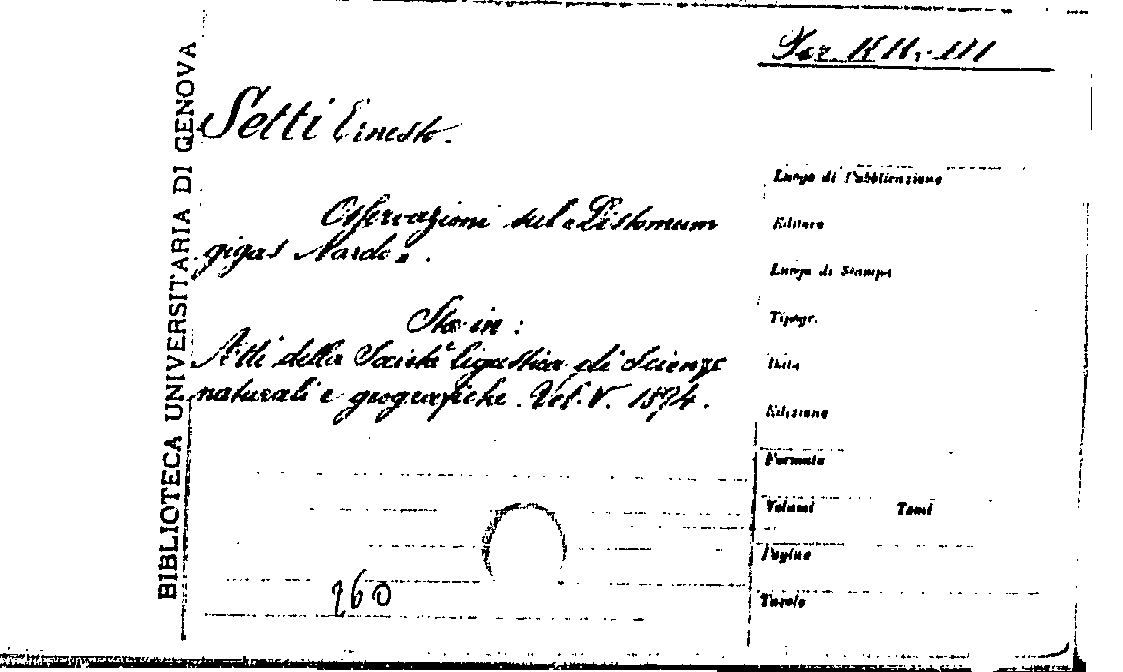 BIBLIOTECA UNIVERSITARIA DI GENOVA
Setti Ernesto.
Osservazioni sul "Distomum
gigas Nardo".
Sta in:
Atti della Società ligustica di Scienze
naturali e geografiche. Vol. V. 1894.
260
Luogo di Pubblicazione
Editore
Luogo di Stampa
Tipogr.
Data
Edizione
Formato
Volumi Tomi
Pagine
Tavole